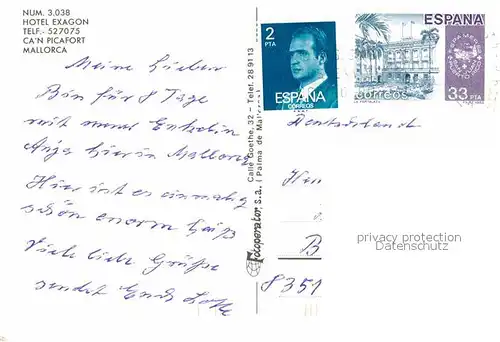 NUM. 3.038
HOTEL EXAGON
TELF.- 527075
CA'N PICAFORT
MALLORCA
Meine Lieben
Bin für 8 Tage
mit meiner Enkelin
Anja hier in Mallorca
Hier ist es einmalig
schön enorm heiß
Viele liebe Grüße
sendet Euch
Fotoperator s.a. Calle Goethe, 32 - Telef. 28 91 13
( Palma de Mallorca )
2
PTA
ESPAÑA
CORREOS
ESPAÑA
ESPAMER
correos
33 PTA
Deutschland
B
8351
privacy protection
Datenschutz